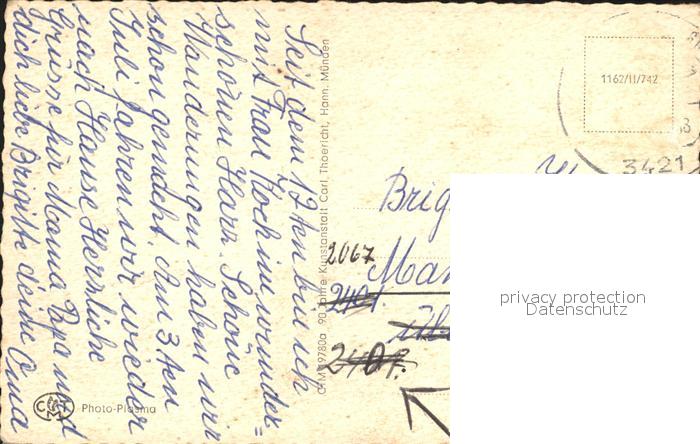 Seit dem 19ten bin ich
mit Frau Koch im wunder=
schönen Harz. Schöne
Wanderungen haben wir
schon gemacht. Am 3ten
Juli fahren wir wieder
nach Hause. Herzliche
Grüsse für Mama Papa und
dich liebe Brigitte deine Oma
CTM 9780a 90 Jahre Kunstanstalt Carl Thoericht, Hann. Münden
Photo-Plasma
1162/II/742
3421
Brig
2067
Man
2401
2407.
privacy protection
Datenschutz